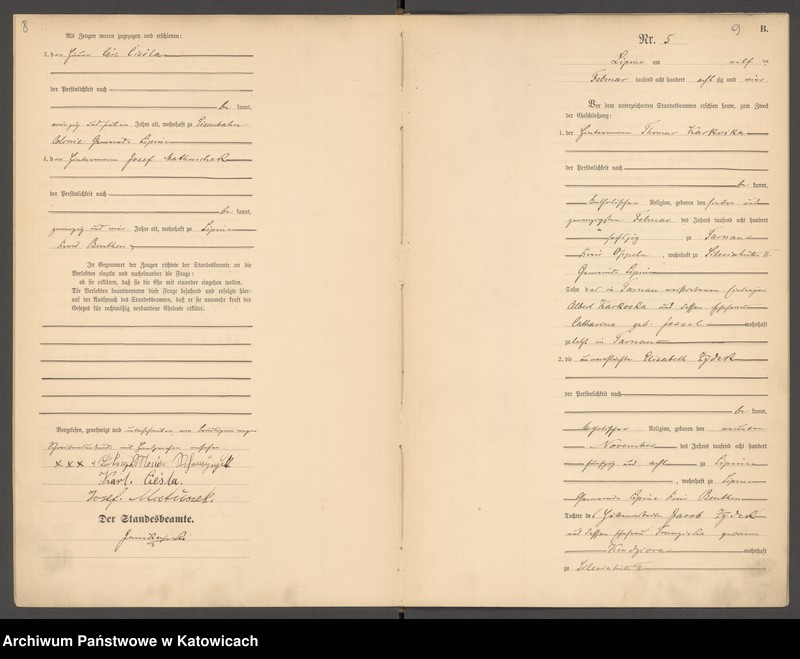 8
Als Zeugen waren zugezogen und erschienen:
3. der Häuer Carl Ciesla
der Persönlichkeit nach
be kannt,
vierzig und sieben Jahre alt, wohnhaft zu Eisenbahn
Colonie Gemeinde Lipine
4. der Josef Matuschek
der Persönlichkeit nach
be kannt,
zwanzig und vier Jahre alt, wohnhaft zu Lipine
Kreis Beuthen
In Gegenwart der Zeugen richtete der Standesbeamte an die
Verlobten einzeln und nacheinander die Frage:
ob sie erklären, daß sie die Ehe mit einander eingehen wollen.
Die Verlobten beantworteten diese Frage bejahend und erfolgte hier-
auf der Ausspruch des Standesbeamten, daß er sie nunmehr kraft des
Gesetzes für rechtmäßig verbundene Eheleute erkläre.
Vorgelesen, genehmigt und unterschrieben vom Bräutigam wegen
Schreibensunkunde mit Handzeichen versehen
xxx
Karl Cieśla.
Josef Matuszek.
Der Standesbeamte.
9
B.
Nr. 5
Lipine am elf ten
Februar tausend acht hundert acht zig und vier
Vor dem unterzeichneten Standesbeamten erschien heute, zum Zweck
der Eheschließung:
1. der Thomas Karkoska
der Persönlichkeit nach
be kannt,
katholischer Religion, geboren den sieben und
zwanzigsten Februar des Jahres tausend acht hundert
sechszig zu Tarnau
Kreis Oppeln, wohnhaft zu Silesiahütte II
Gemeinde Lipine
Sohn des in Tarnau verstorbenen Einliegers
Albert Karkoska und dessen Ehefrau
Catharina geb. Jessel wohnhaft
zuletzt in Tarnau
2. die unverehelichte Elisabeth Zydek
der Persönlichkeit nach
be kannt,
katholischer Religion, geboren den neunten
November des Jahres tausend acht hundert
fünfzig und acht zu Lipine
, wohnhaft zu Lipine
Gemeinde Lipine Kreis Beuthen
Tochter des Hüttenarbeiter Jacob Zydek
und dessen Ehefrau Franziska geborene
Kendziora wohnhaft
zu Silesiahütte II
Archiwum Państwowe w Katowicach